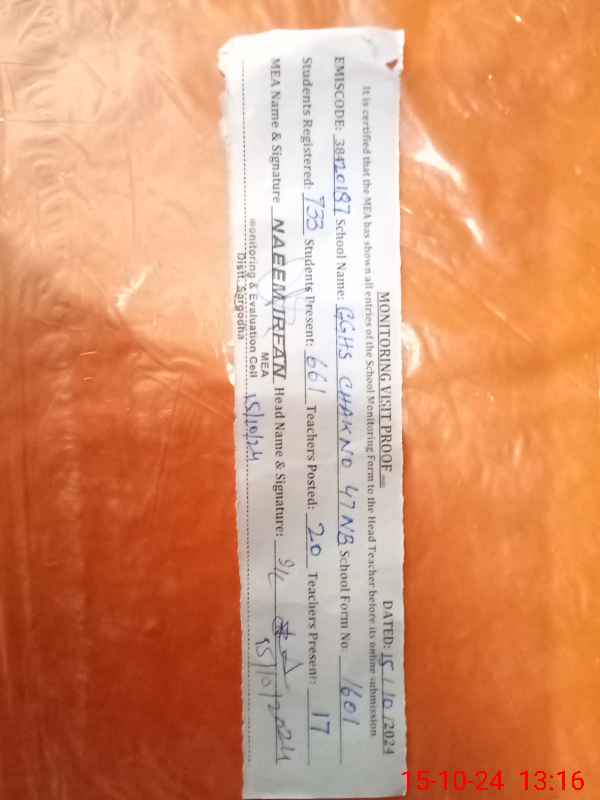 MONITORING VISIT PROOF DATED: 15/10/2024
It is certified that the MEA has shown all entries of the School Monitoring Form to the Head Teacher before its online submission
EMISCODE: 38420187 School Name: GGHS CHAK NO 47 NB School Form No: 1601
Students Registered: 733 Students Present: 661 Teachers Posted: 20 Teachers Present: 17
MEA Name & Signature NAEEM IRFAN Head Name & Signature: 15/10/2024
MEA
Monitoring & Evaluation Cell 15/10/24
Distt. Sargodha
15-10-24 13:16